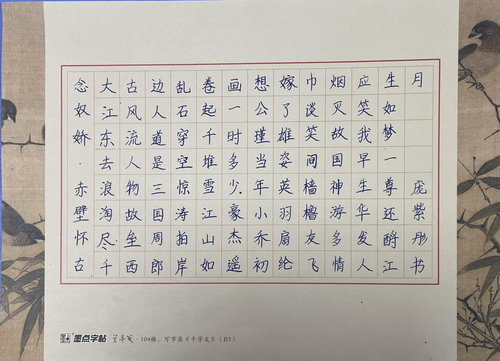 念奴娇·赤壁怀古
大江东去浪淘尽千
古风流人物故垒西
边人道是三国周郎
乱石穿空惊涛拍岸
卷起千堆雪江山如
画一时多少豪杰遥
想公瑾当年小乔初
嫁了雄姿英羽扇纶
巾谈笑间樯橹友飞
烟灭故国神游多情
应笑我早生华发人
生如梦一尊还酹江
月 庞紫彤书
墨点字帖 · 104格,可节录《千字文》(B3)